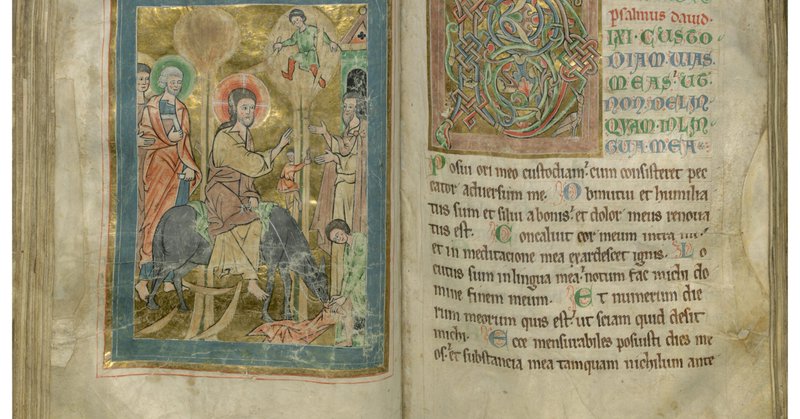 psalmus david.
IXI CUSTO
DIAM UIAS
MEAS UT
NON DELIN
QUAM IN LIN
GUA MEA
Posui ori meo custodiam cum consisteret pec
cator adversum me. Obmutui et humilia
tus sum et silui a bonis et dolor meus renova
tus est. Concaluit cor meum intra me
et in meditacione mea exardescet ignis. Lo
cutus sum in lingua mea notum fac michi do
mine finem meum. Et numerum die
rum meorum quis est ut sciam quid desit
michi. Ecce mensurabiles posuisti dies me
os et substancia mea tamquam nichilum ante